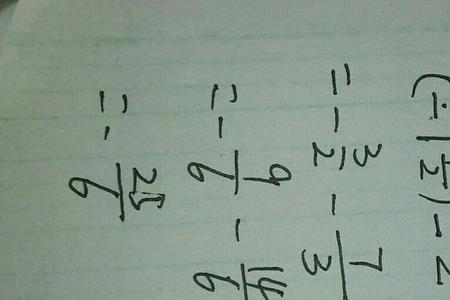 (-1 1/2) - 2
= - 3/2 - 7/3
= - 9/6 - 14/6
= - 23/6